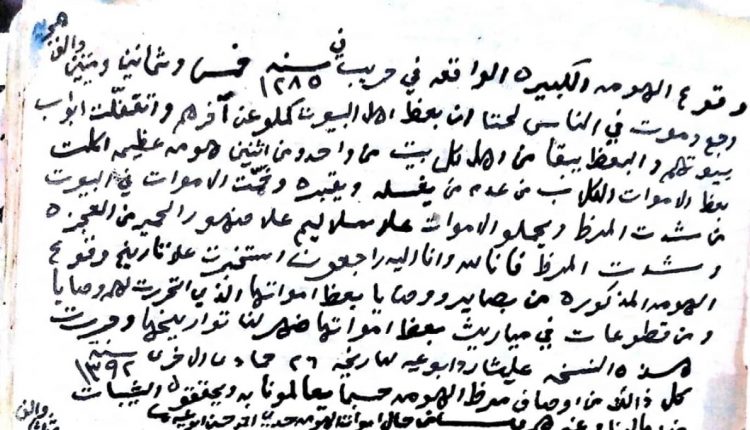 وقوع الهومه الكبيره الواقعه في حريب في سنه ١٢٨٥ خمس وثمانين وميتين والف هجريه
وجع وموت في الناس لحتا ان بعظ اهل البيوت كملو عن آخرهم واتقفلت ابواب
بيوتهم والبعظ يبقا من اهل كل بيت من واحد ومن اثنين هومه عظيمه اكلت
بعظ الاموات الكلاب من عدم من يغسله ويقبره وخمّت الاموات في البيوت
من شدت المرظ ويحملو الاموات علا سلاليم علا ضهور الحمير من العجزه
وشدت المرظ فانا لله وانا اليه راجعون استخبرت علا تاريخ وقوع
الهومه المذكوره من بصاير ووصايا بعظ امواتها الذي اتحررت لهم وصايا
ومن قطوعات في مياريث بعظ امواتها ضهر لنا تواريخها وحررت
هذه النسخه علي شارد ابوعيه لتاريخه ٢٦ جمادى الاخرى سنه ١٣٩٢
كل ذالك من اوصاف مرظ الهومه حسبما يعالمونا به ويحققون الشيبات